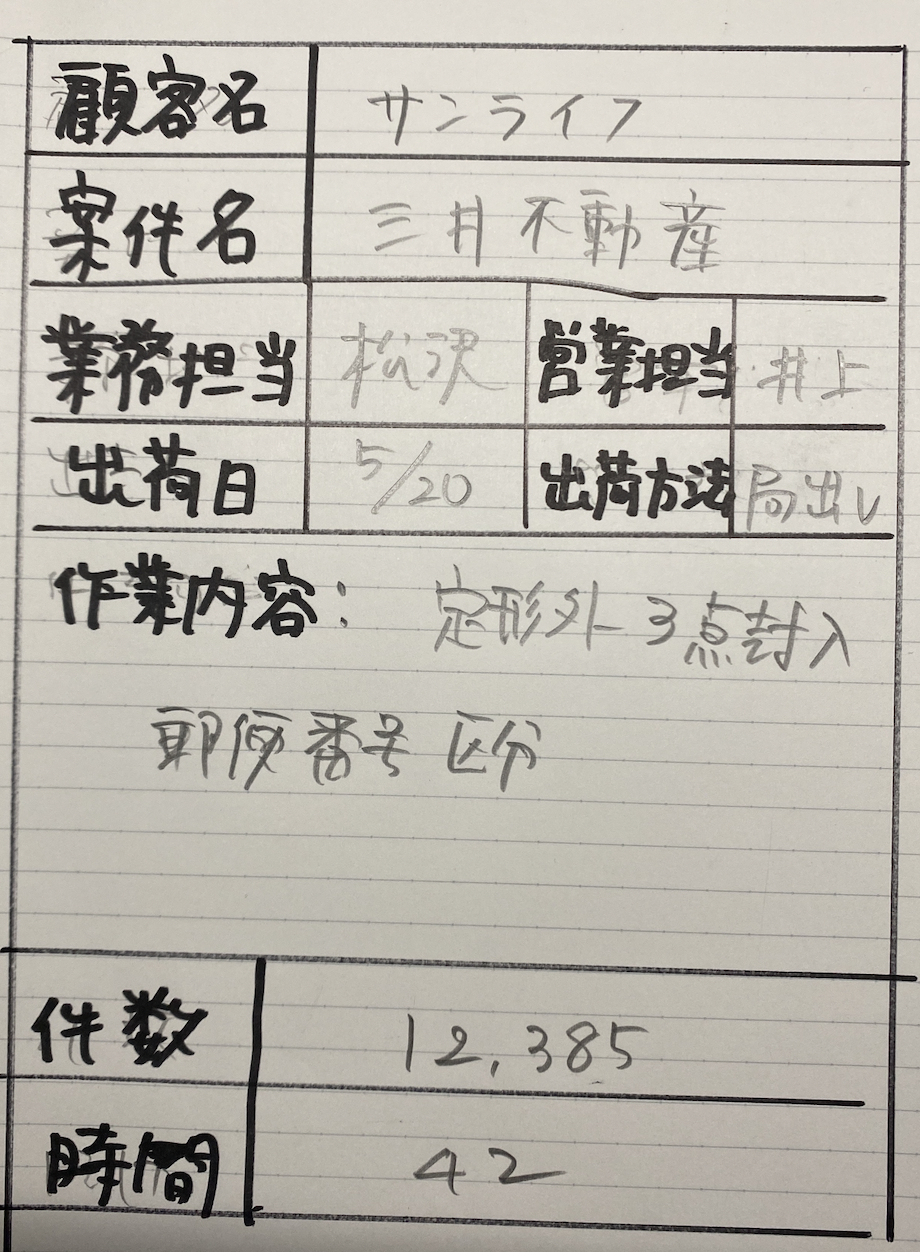 顧客名 サンライフ
案件名 三井不動産
業務担当 松沢 営業担当 井上
出荷日 5/20 出荷方法 局出し
作業内容: 定形外 3点封入
郵便番号区分
件数 12,385
時間 42